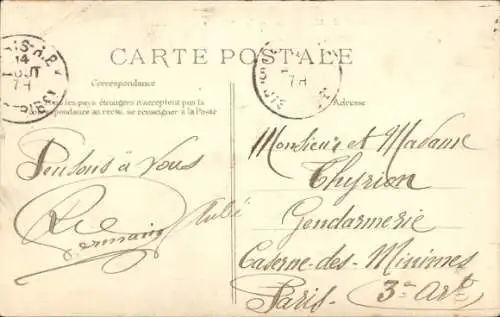 CARTE POSTALE
Correspondance
les pays étrangers n'acceptent pas la
correspondance au recto, se renseigner à la Poste
Adresse
14
AOUT
7H
7H
Pensons à Vous
Germain
Monsieur et Madame
Thyrion
Gendarmerie
Caserne-des-Minimes
Paris- 3e Art